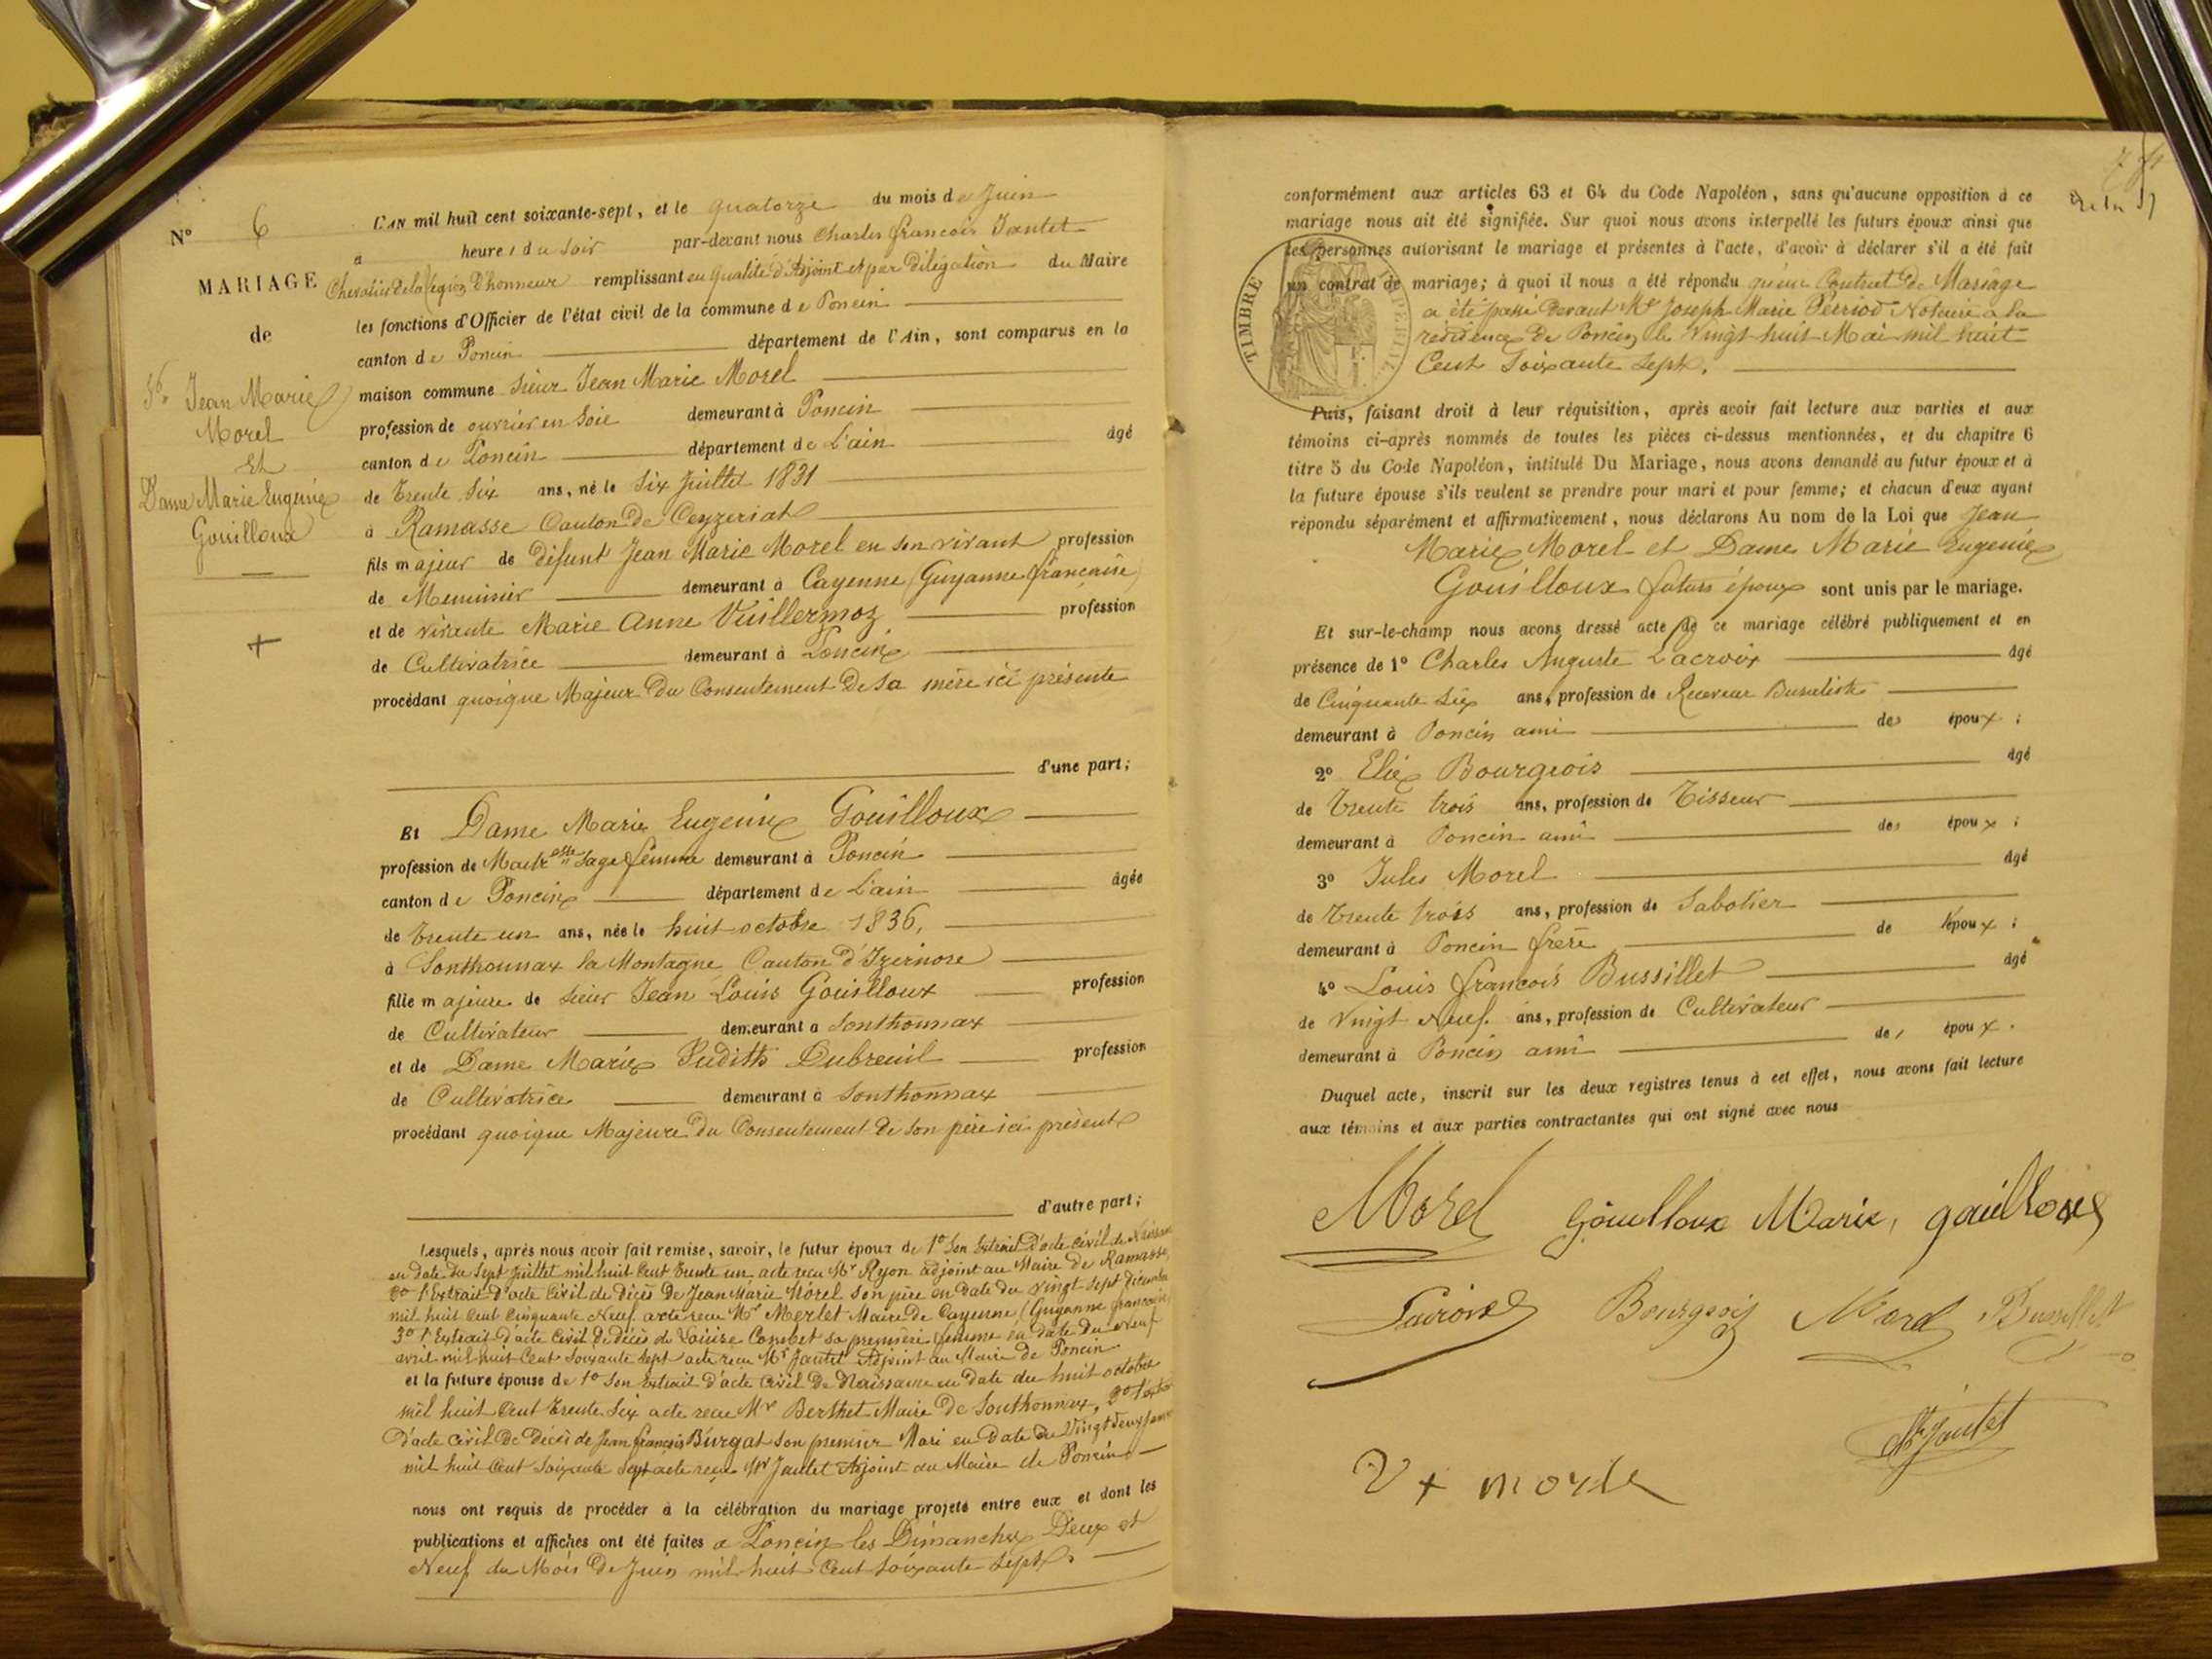 N° 6
MARIAGE
de
Sr Jean Marie
Morel
Et
Dame Marie Eugenie
Gouilloux
L'AN mil huit cent soixante-sept, et le quatorze du mois de Juin
à heures du soir par-devant nous Charles françois Jantet
Chevalier de la Légion d'honneur remplissant en qualité d'Adjoint et par Délégation du Maire
les fonctions d'Officier de l'état civil de la commune de Poncin
canton de Poncin département de l'Ain, sont comparus en la
maison commune Sieur Jean Marie Morel
profession de ouvrier en Soie demeurant à Poncin
canton de Poncin département de L'ain âgé
de trente six ans, né le Six Juillet 1831
à Ramasse Canton de Ceyzeriat
fils majeur de défunt Jean Marie Morel en son vivant profession
de Menuisier demeurant à Cayenne (Guyanne française)
et de vivante Marie Anne Vuillermoz profession
de Cultivatrice demeurant à Poncin
procédant quoique Majeur du Consentement de sa mère ici présente
d'une part;
Et Dame Marie Eugenie Gouilloux
profession de Maitresse Sage femme demeurant à Poncin
canton de Poncin département de L'ain âgée
de trente un ans, née le huit octobre 1836,
à Sonthonnax la Montagne Canton d'Izernore
fille majeure de sieur Jean Louis Gouilloux profession
de Cultivateur demeurant à Sonthonnax
et de Dame Marie Judith Dubreuil profession
de Cultivatrice demeurant à Sonthonnax
procédant quoique Majeure du Consentement de son père ici présent
d'autre part;
Lesquels, après nous avoir fait remise, savoir, le futur époux de 1° Son Extrait d'acte civil de
en date du Sept Juillet mil huit Cent trente un acte reçu Mr Ryon adjoint au Maire de Ramasse
2° l'Extrait d'acte Civil de décès de Jean Marie Morel son père en date du vingt sept décembre
mil huit Cent Cinquante Neuf acte reçu Mr Merlet Maire de Cayenne (Guyanne française)
3° l'Extrait d'acte Civil de décès de Louise Combet sa première femme en date du Neuf
avril mil huit Cent Soixante Sept acte reçu Mr Jantet Adjoint au Maire de Poncin
et la future épouse de 1° Son Extrait d'acte Civil de Naissance en date du huit octobre
mil huit Cent trente Six acte reçu Mr Berthet Maire de Sonthonnax, 2°
D'acte Civil de décès de Jean françois Burgat son premier Mari en date du Vingt deux
mil huit Cent Soixante Sept acte reçu Mr Jantet Adjoint au Maire de Poncin
nous ont requis de procéder à la célébration du mariage projeté entre eux et dont les
publications et affiches ont été faites à Poncin les Dimanches Deux et
Neuf du Mois de Juin mil huit Cent soixante Sept.
conformément aux articles 63 et 64 du Code Napoléon, sans qu'aucune opposition à ce
mariage nous ait été signifiée. Sur quoi nous avons interpellé les futurs époux ainsi que
les personnes autorisant le mariage et présentes à l'acte, d'avoir à déclarer s'il a été fait
un contrat de mariage; à quoi il nous a été répondu qu'un Contrat de Mariage
a été passé devant Me Joseph Marie Perriod Notaire à la
résidence de Poncin le Vingt huit Mai mil huit
Cent Soixante Sept.
TIMBRE
Puis, faisant droit à leur réquisition, après avoir fait lecture aux parties et aux
témoins ci-après nommés de toutes les pièces ci-dessus mentionnées, et du chapitre 6
titre 5 du Code Napoléon, intitulé Du Mariage, nous avons demandé au futur époux et à
la future épouse s'ils veulent se prendre pour mari et pour femme; et chacun d'eux ayant
répondu séparément et affirmativement, nous déclarons Au nom de la Loi que Jean
Marie Morel et Dame Marie Eugenie
Gouilloux futurs époux sont unis par le mariage.
Et sur-le-champ nous avons dressé acte de ce mariage célébré publiquement et en
présence de 1° Charles Auguste Lacroix âgé
de Cinquante Six ans, profession de Receveur Buraliste
demeurant à Poncin ami des époux;
2° Elie Bourgeois âgé
de trente trois ans, profession de Tisseur
demeurant à Poncin ami des époux;
3° Jules Morel âgé
de trente trois ans, profession de Sabotier
demeurant à Poncin frère de l'époux;
4° Louis françois Bussillet âgé
de Vingt Neuf ans, profession de Cultivateur
demeurant à Poncin ami des époux.
Duquel acte, inscrit sur les deux registres tenus à cet effet, nous avons fait lecture
aux témoins et aux parties contractantes qui ont signé avec nous
Morel Gouilloux Marie, gouilloux
Lacroix Bourgeois Morel Bussillet
Jantet